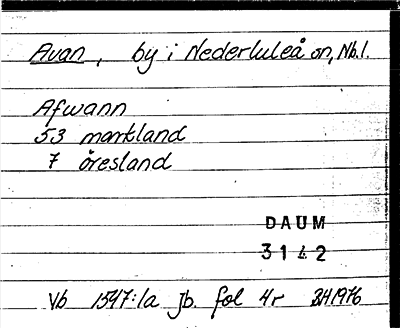 Avan, by i Nederluleå sn, Nb.l.
Afwann
53 markland
7 öresland
DAUM
3142
Vb 1547:1a jb. fol 4r BH1976